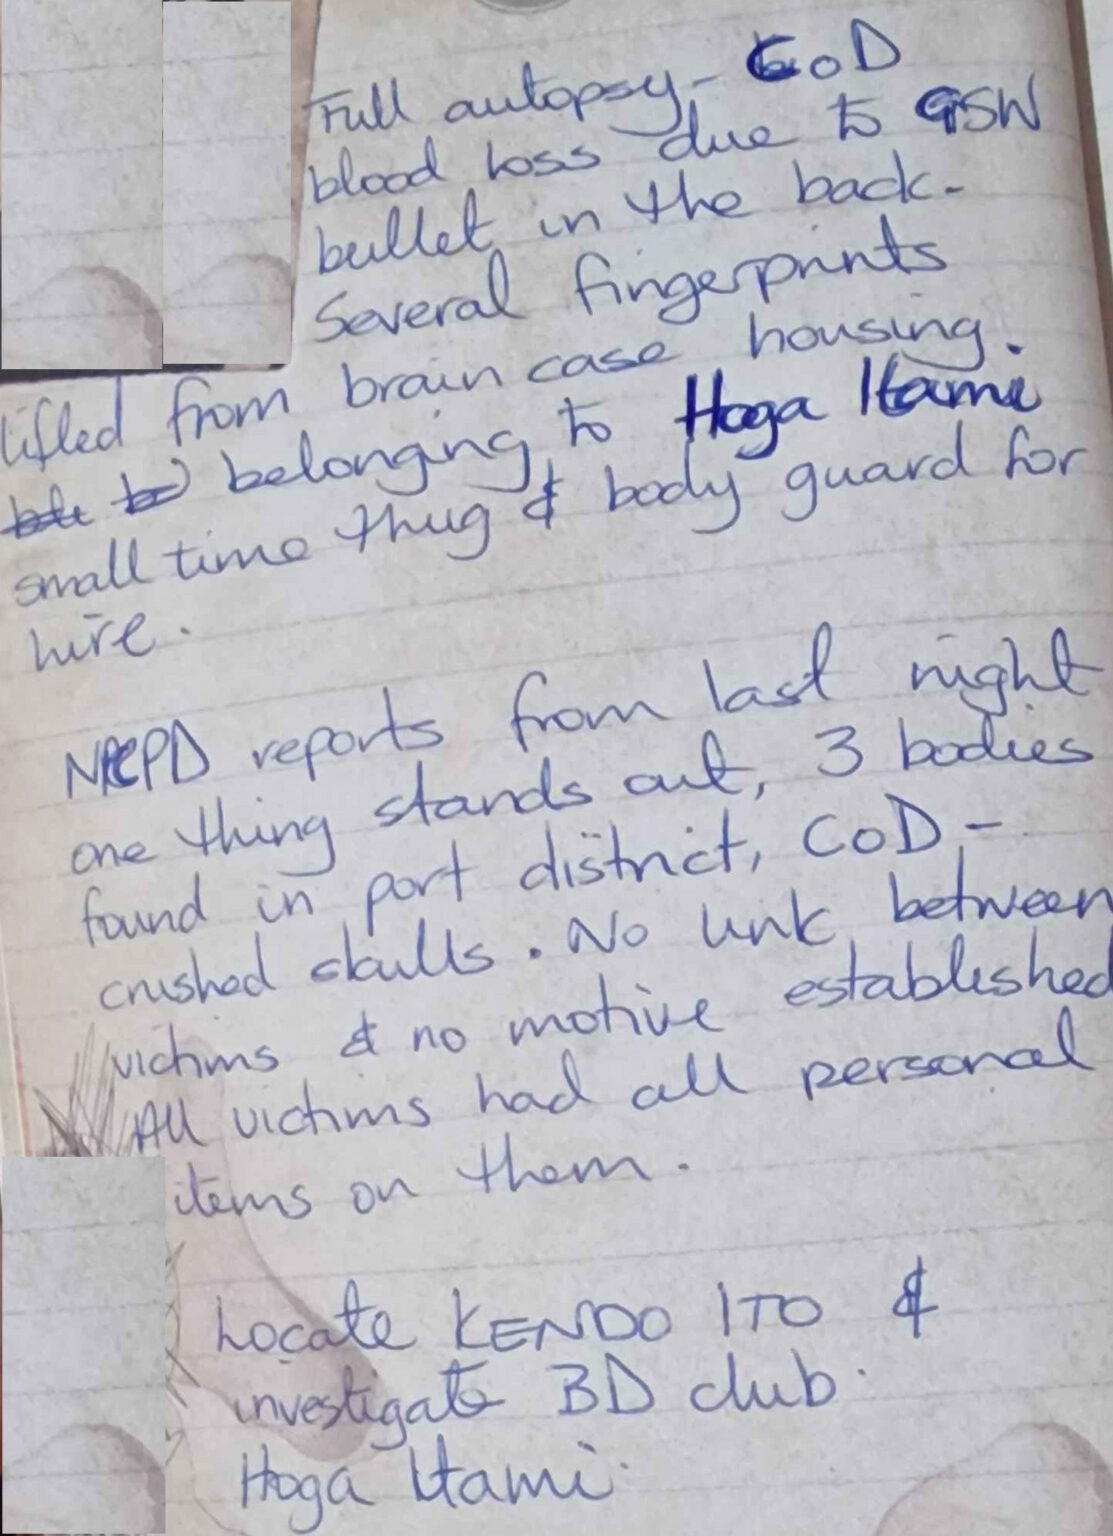 Full autopsy - CoD
blood loss due to GSW
bullet in the back.
Several fingerprints
lifted from brain case housing.
belonging to Hoga Itami
small time thug & body guard for
hire.
NCPD reports from last night
one thing stands out, 3 bodies
found in port district, CoD -
crushed skulls. No link between
victims & no motive established
All victims had all personal
items on them.
Locate KENDO ITO &
investigate BD club.
Hoga Itami